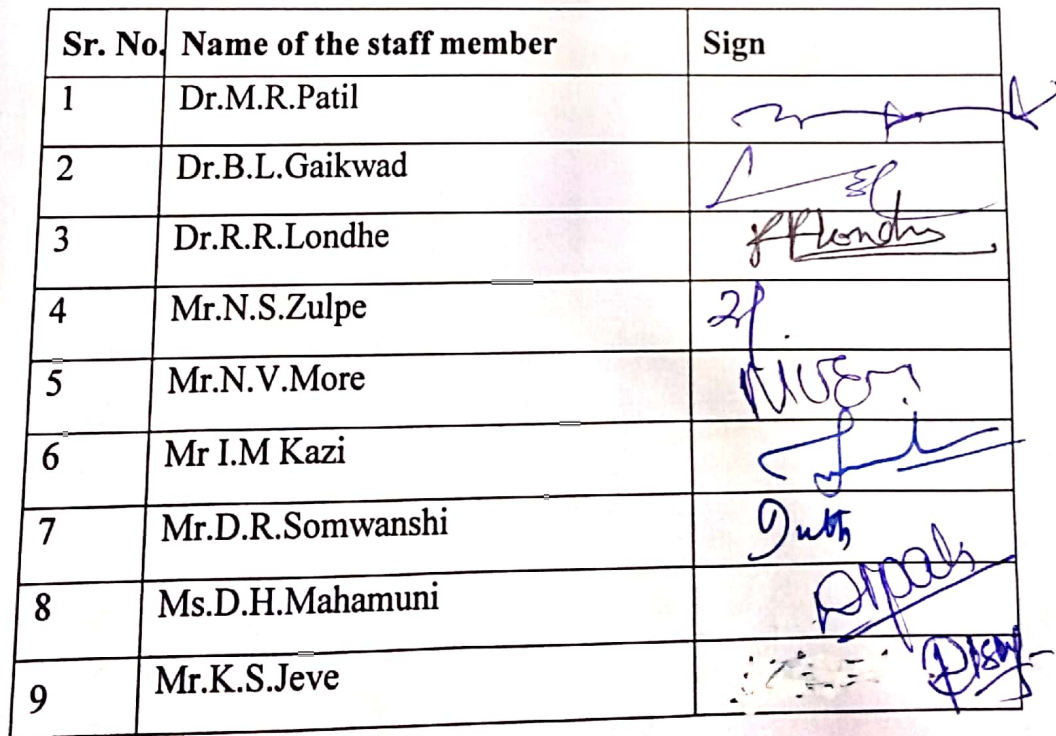 Sr. No. Name of the staff member Sign
1 Dr.M.R.Patil
2 Dr.B.L.Gaikwad
3 Dr.R.R.Londhe
4 Mr.N.S.Zulpe
5 Mr.N.V.More
6 Mr I.M Kazi
7 Mr.D.R.Somwanshi
8 Ms.D.H.Mahamuni
9 Mr.K.S.Jeve